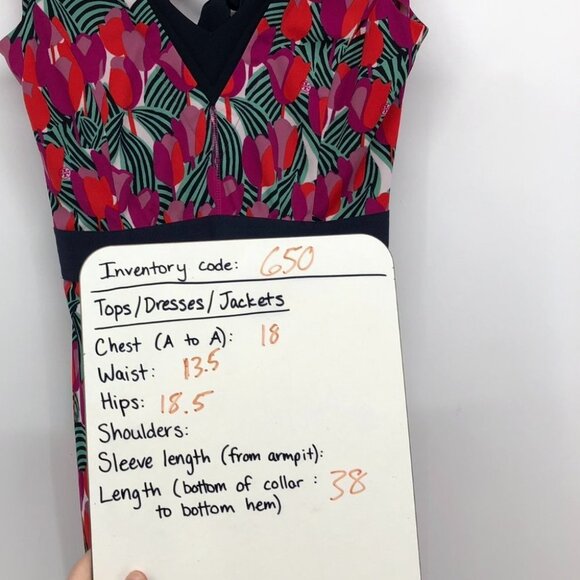 Inventory code: 650
Tops/Dresses/Jackets
Chest (A to A): 18
Waist: 13.5
Hips: 18.5
Shoulders:
Sleeve length (from armpit):
Length (bottom of collar : 38
to bottom hem)